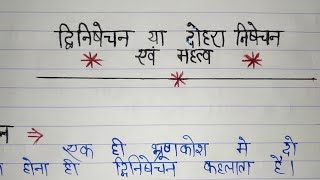 द्विनिषेचन या दोहरा निषेचन
एवं महत्व
न ⇒ एक ही भ्रूणकोश मे दो
होना ही द्विनिषेचन कहलाता है।